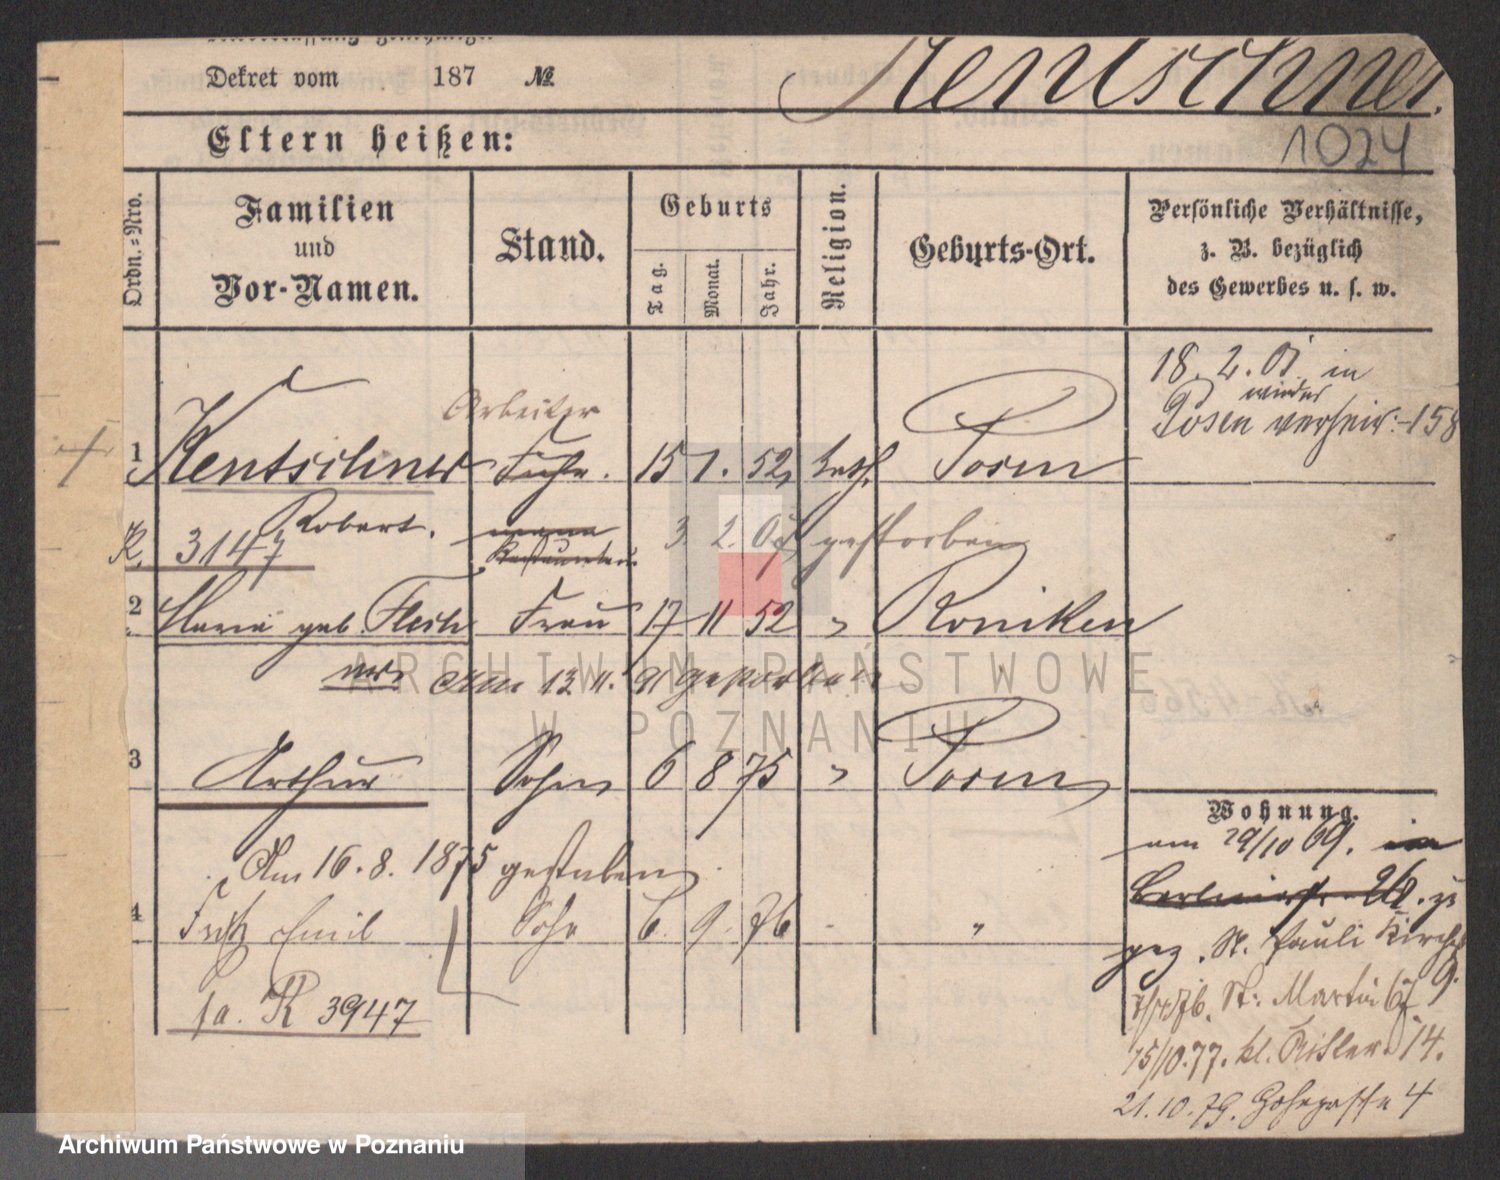 Dekret vom 187 №
Kentschner.
1024
Eltern heißen:
Ordn.=Nro.
Familien
und
Vor-Namen.
Stand.
Geburts
Tag.
Monat.
Jahr.
Religion.
Geburts-Ort.
Persönliche Verhältnisse,
z. B. bezüglich
des Gewerbes u. s. w.
18. 2. 01 in
wieder
Posen verheir. -158
Arbeiter
1 Kentschner 15 1. 52 kath. Posen
Robert.
R 3147 3 2. gestorben
2 Maria geb. Flesch Frau 17 11 52 " Roniken
ner. Am 13 11. 91 gestorben
3 Arthur Sohn 6 8 75 " Posen
Wohnung.
am 29/10 69. in
Am 16. 8. 1875 gestorben
26. zu
4 Fritz Emil Sohn 6. 9. 76 - "
gez. St. Pauli Kirchst
9.
fa. R 3947
St. Martin
15/10.77. kl. Ritter 14.
21.10.79. 4
ARCHIWUM PAŃSTWOWE
W POZNANIU
Archiwum Państwowe w Poznaniu